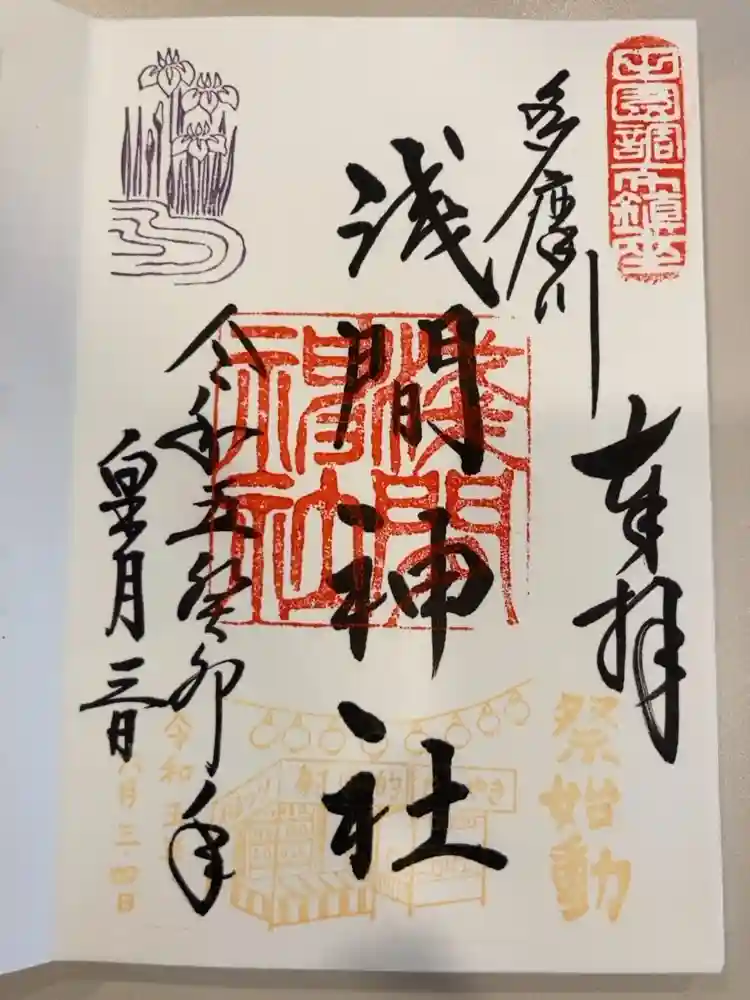 田園調布鎮座
奉拝
多摩川
浅間神社
淺間
神社
令和五癸卯年
皐月三日
祭始動
射的
やき
令和五
月三・四日